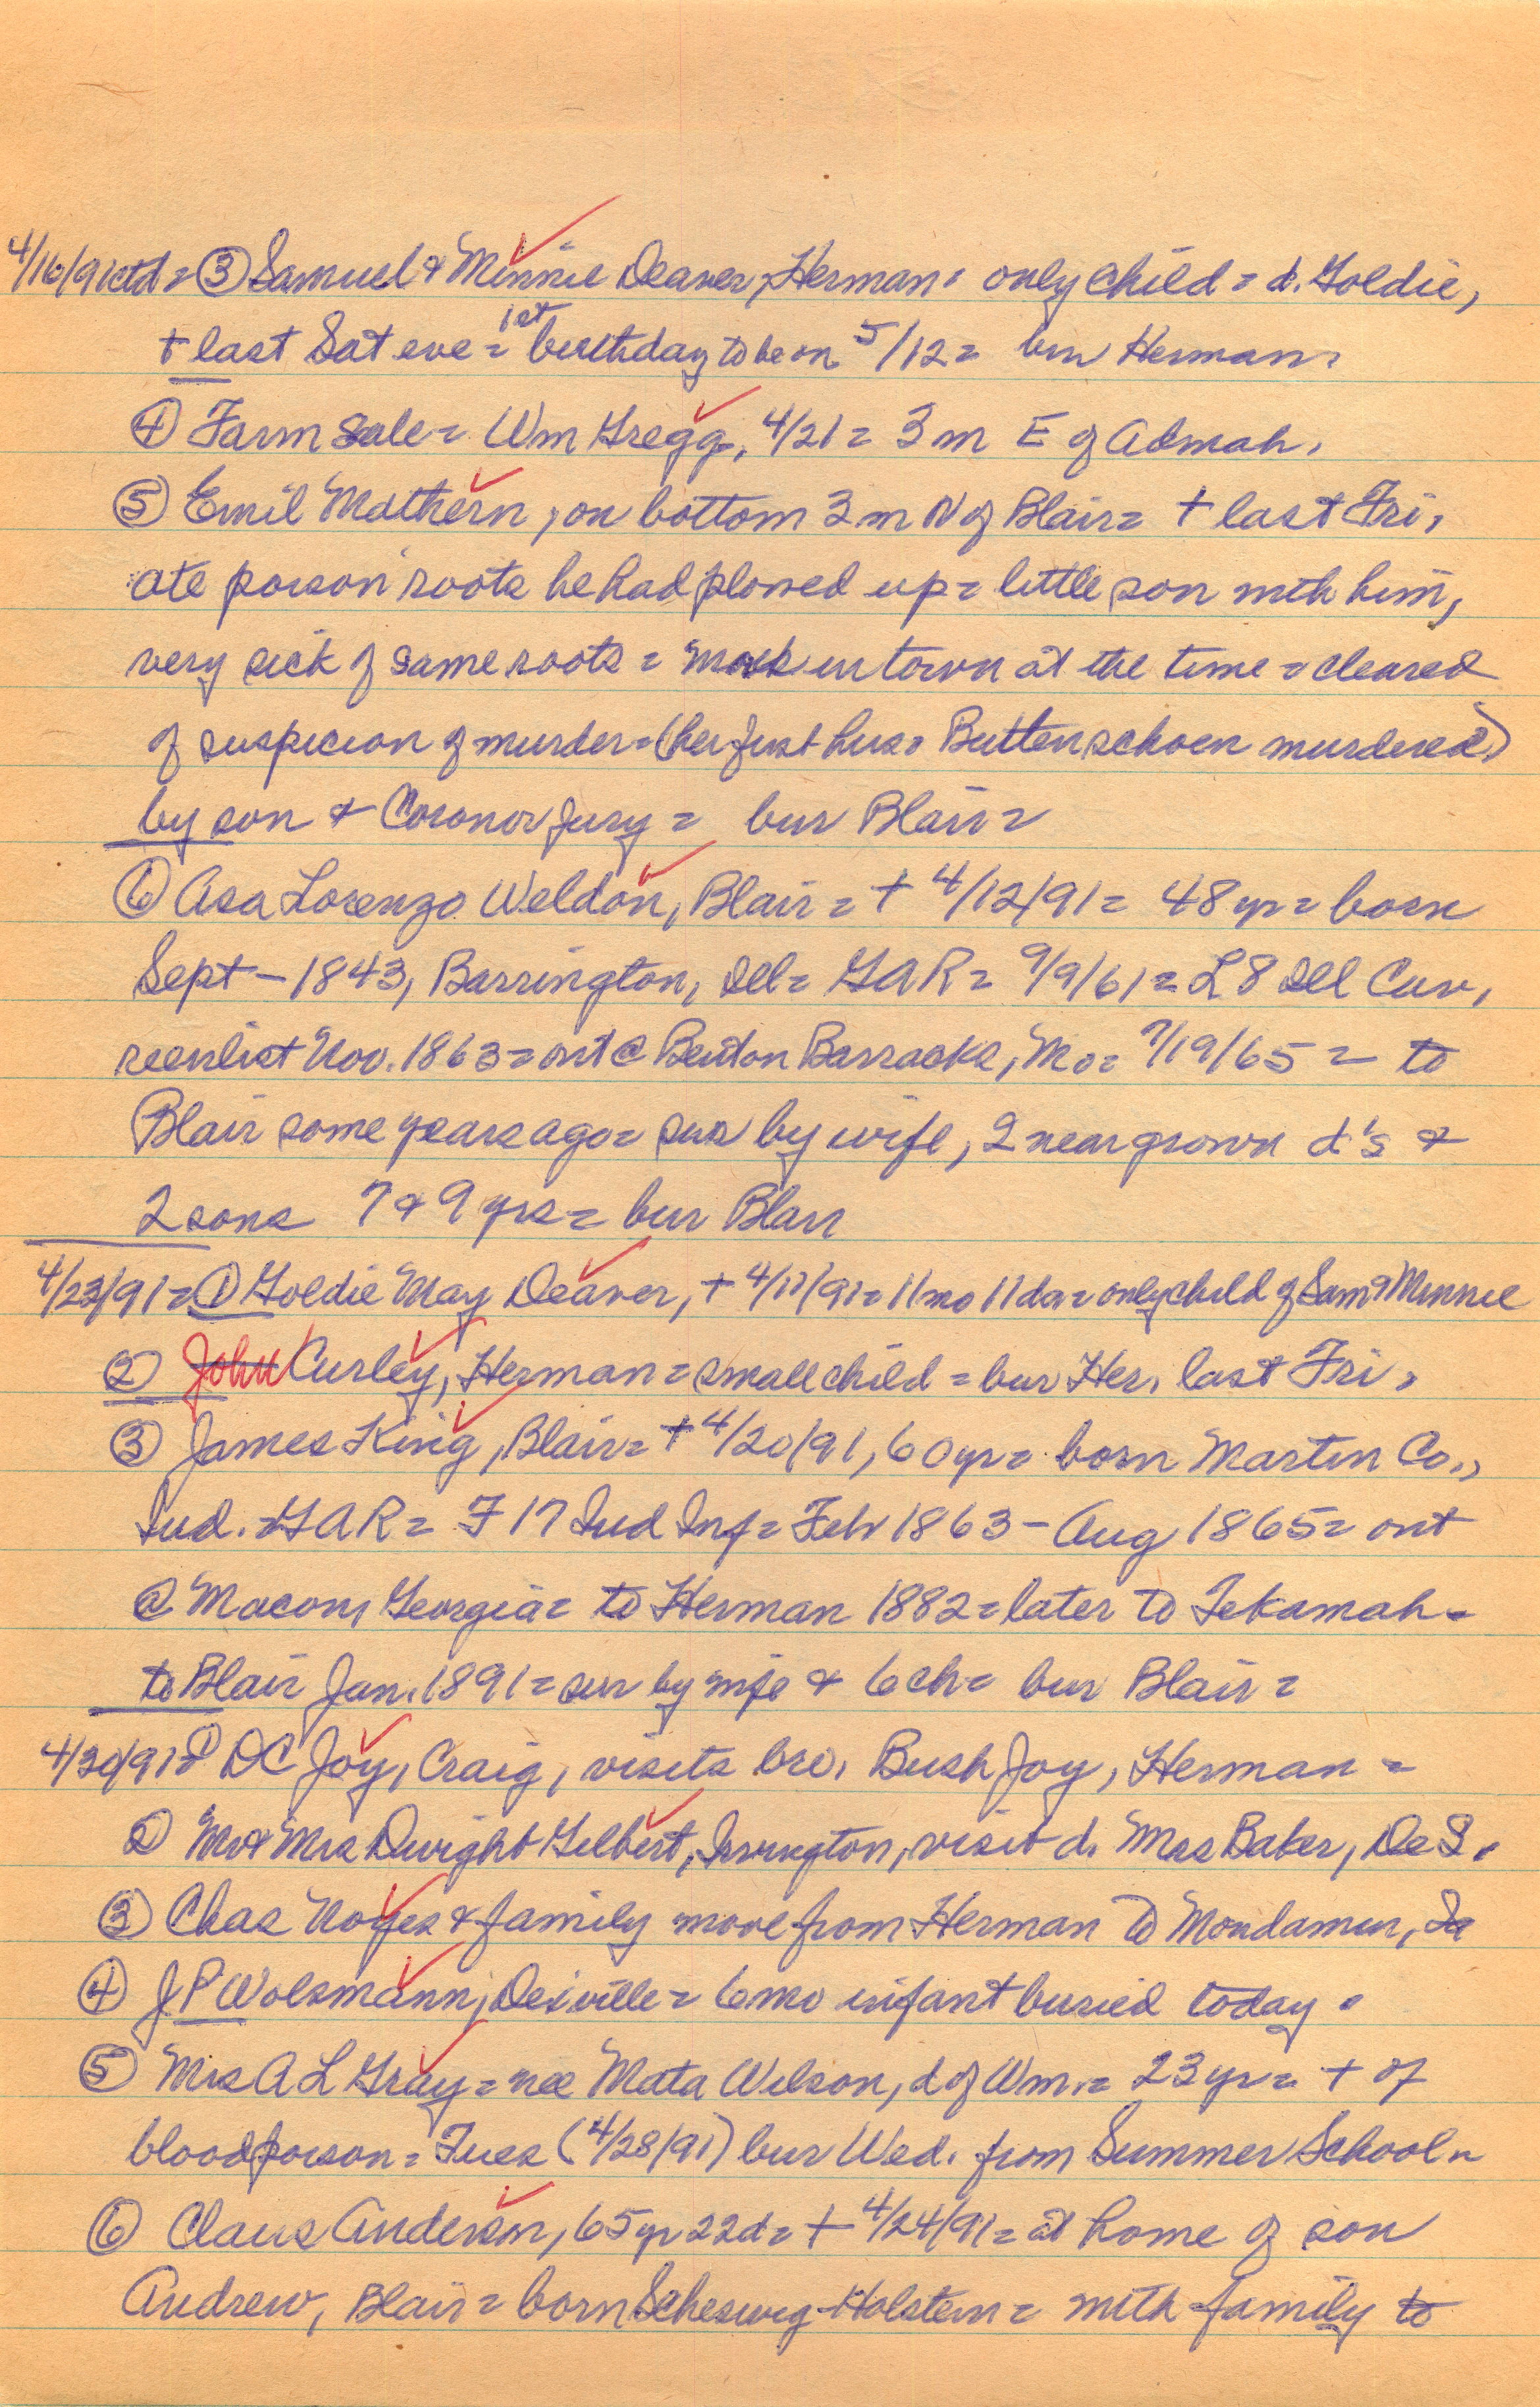 4/16/91 ctd = ③ Samuel & Minnie Deaver, Herman = only child = d. Goldie,
+ last Sat eve = 1st birthday to be on 5/12 = bur Herman.
④ Farm Sale = Wm Gregg, 4/21 = 3 m E of Admah.
⑤ Emil Mathern, on bottom 3 m N of Blair = + last Fri,
ate poison roots he had plowed up = little son with him,
very sick of same roots = in town at the time = cleared
of suspicion of murder = (her first hus. Buttenschoen murdered)
by son & Coroner Jury = bur Blair =
⑥ Asa Lorenzo Weldon, Blair = + 4/12/91 = 48 yr = born
Sept – 1843, Barrington, Ill = GAR = 9/9/61 = L 8 Ill Cav,
reenlist Nov. 1863 = out @ Benton Barracks, Mo = 7/19/65 = to
Blair some years ago = sur by wife, 2 near grown d's &
2 sons 7 & 9 yrs = bur Blair
4/23/91 = ① Goldie May Deaver, + 4/11/91 = 11 mo 11 da = only child of Sam & Minnie
② John Curley, Herman = small child = bur Her. last Fri.
③ James King, Blair = + 4/20/91, 60 yr = born Martin Co.,
Ind. = GAR = F 17 Ind Inf = Feb 1863 – Aug 1865 = out
@ Macon, Georgia = to Herman 1882 = later to Tekamah =
to Blair Jan. 1891 = sur by wife & 6 ch = bur Blair =
4/30/91 = ① DC Joy, Craig, visits bro. Bush Joy, Herman =
② Mr & Mrs Dwight Gilbert, Irvington, visit d. Mrs Baker, De S.
③ Chas Noyes & family move from Herman to Mondamin, Ia
④ JP Wolsmann, = 6 mo infant buried today.
⑤ Mrs A L Gray = nee Mata Wilson, d of Wm. = 23 yr = + of
blood poison = Tues (4/28/91) bur Wed. from Summer School =
⑥ Claus Anderson, 65 yr 22 d = + 4/24/91 = at home of son
Andrew, Blair = born Scheswig-Holstein = with family to